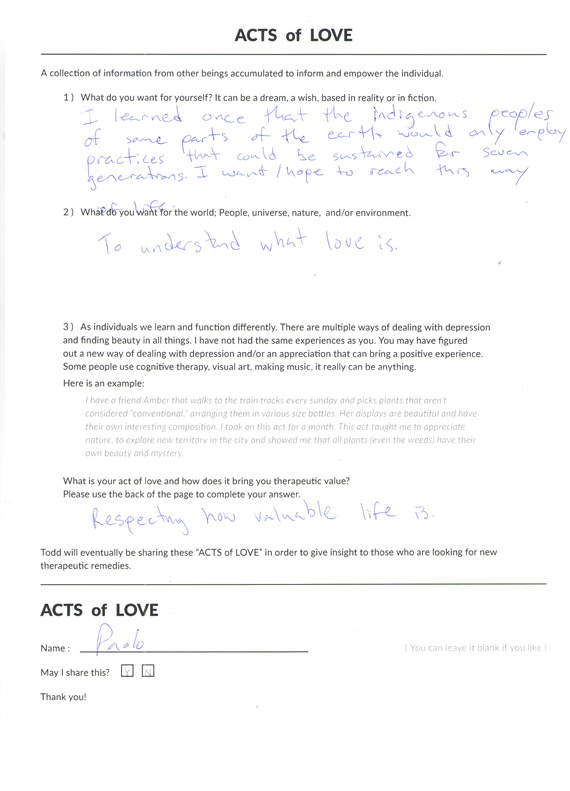 ACTS of LOVE
A collection of information from other beings accumulated to inform and empower the individual.
1 ) What do you want for yourself? It can be a dream, a wish, based in reality or in fiction.
I learned once that the indigenous peoples
of some parts of the earth would only employ
practices that could be sustained for seven
generations. I want/hope to reach this way
of life.
2 ) What do you want for the world; People, universe, nature, and/or environment.
To understand what love is.
3 ) As individuals we learn and function differently. There are multiple ways of dealing with depression
and finding beauty in all things. I have not had the same experiences as you. You may have figured
out a new way of dealing with depression and/or an appreciation that can bring a positive experience.
Some people use cognitive therapy, visual art, making music, it really can be anything.
Here is an example:
I have a friend Amber that walks to the train tracks every sunday and picks plants that aren't
considered "conventional," arranging them in various size bottles. Her displays are beautiful and have
their own interesting composition. I took on this act for a month. This act taught me to appreciate
nature, to explore new territory in the city and showed me that all plants (even the weeds) have their
own beauty and mystery.
What is your act of love and how does it bring you therapeutic value?
Please use the back of the page to complete your answer.
Respecting how valuable life is.
Todd will eventually be sharing these "ACTS of LOVE" in order to give insight to those who are looking for new
therapeutic remedies.
ACTS of LOVE
Name : Paolo ( You can leave it blank if you like )
May I share this? Y N
Thank you!